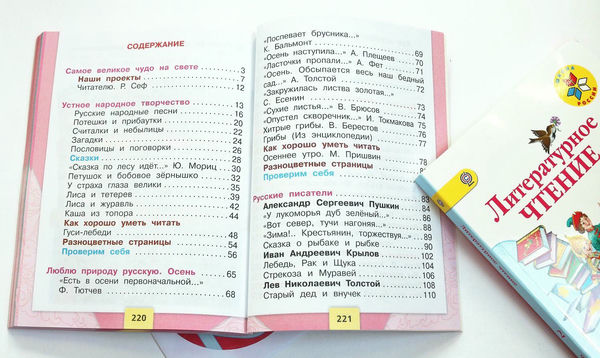 СОДЕРЖАНИЕ
Самое великое чудо на свете ..... 3
Наши проекты ..... 7
Читателю. Р. Сеф ..... 12
Устное народное творчество ..... 13
Русские народные песни ..... 16
Потешки и прибаутки .....
Считалки и небылицы .....
Загадки ..... 24
Пословицы и поговорки .....
Сказки ..... 28
«Сказка по лесу идёт...» Ю. Мориц .....
Петушок и бобовое зёрнышко .....
У страха глаза велики .....
Лиса и тетерев .....
Лиса и журавль .....
Каша из топора ..... 44
Как хорошо уметь читать
Гуси-лебеди .....
Разноцветные страницы ..... 54
Проверим себя ..... 56
Люблю природу русскую. Осень ..... 65
«Есть в осени первоначальной...»
Ф. Тютчев ..... 68
220
«Поспевает брусника...»
К. Бальмонт ..... 69
«Осень наступила...» А. Плещеев ..... 70
«Ласточки пропали...» А. Фет .....
«Осень. Обсыпается весь наш бедный
сад...» А. Толстой .....
«Закружилась листва золотая...»
С. Есенин .....
«Сухие листья...» В. Брюсов .....
«Опустел скворечник...» И. Токмакова .....
Хитрые грибы. В. Берестов .....
Грибы (Из энциклопедии) .....
Как хорошо уметь читать
Осеннее утро. М. Пришвин .....
Разноцветные страницы .....
Проверим себя .....
Русские писатели ..... 83
Александр Сергеевич Пушкин ..... 84
«У лукоморья дуб зелёный...» .....
«Вот север, тучи нагоняя...» .....
«Зима!.. Крестьянин, торжествуя...» ..... 89
Сказка о рыбаке и рыбке ..... 90
Иван Андреевич Крылов .....
Лебедь, Рак и Щука ..... 104
Стрекоза и Муравей ..... 106
Лев Николаевич Толстой ..... 108
Старый дед и внучек ..... 110
221
ШКОЛА
РОССИИ
Литературное
ЧТЕНИЕ